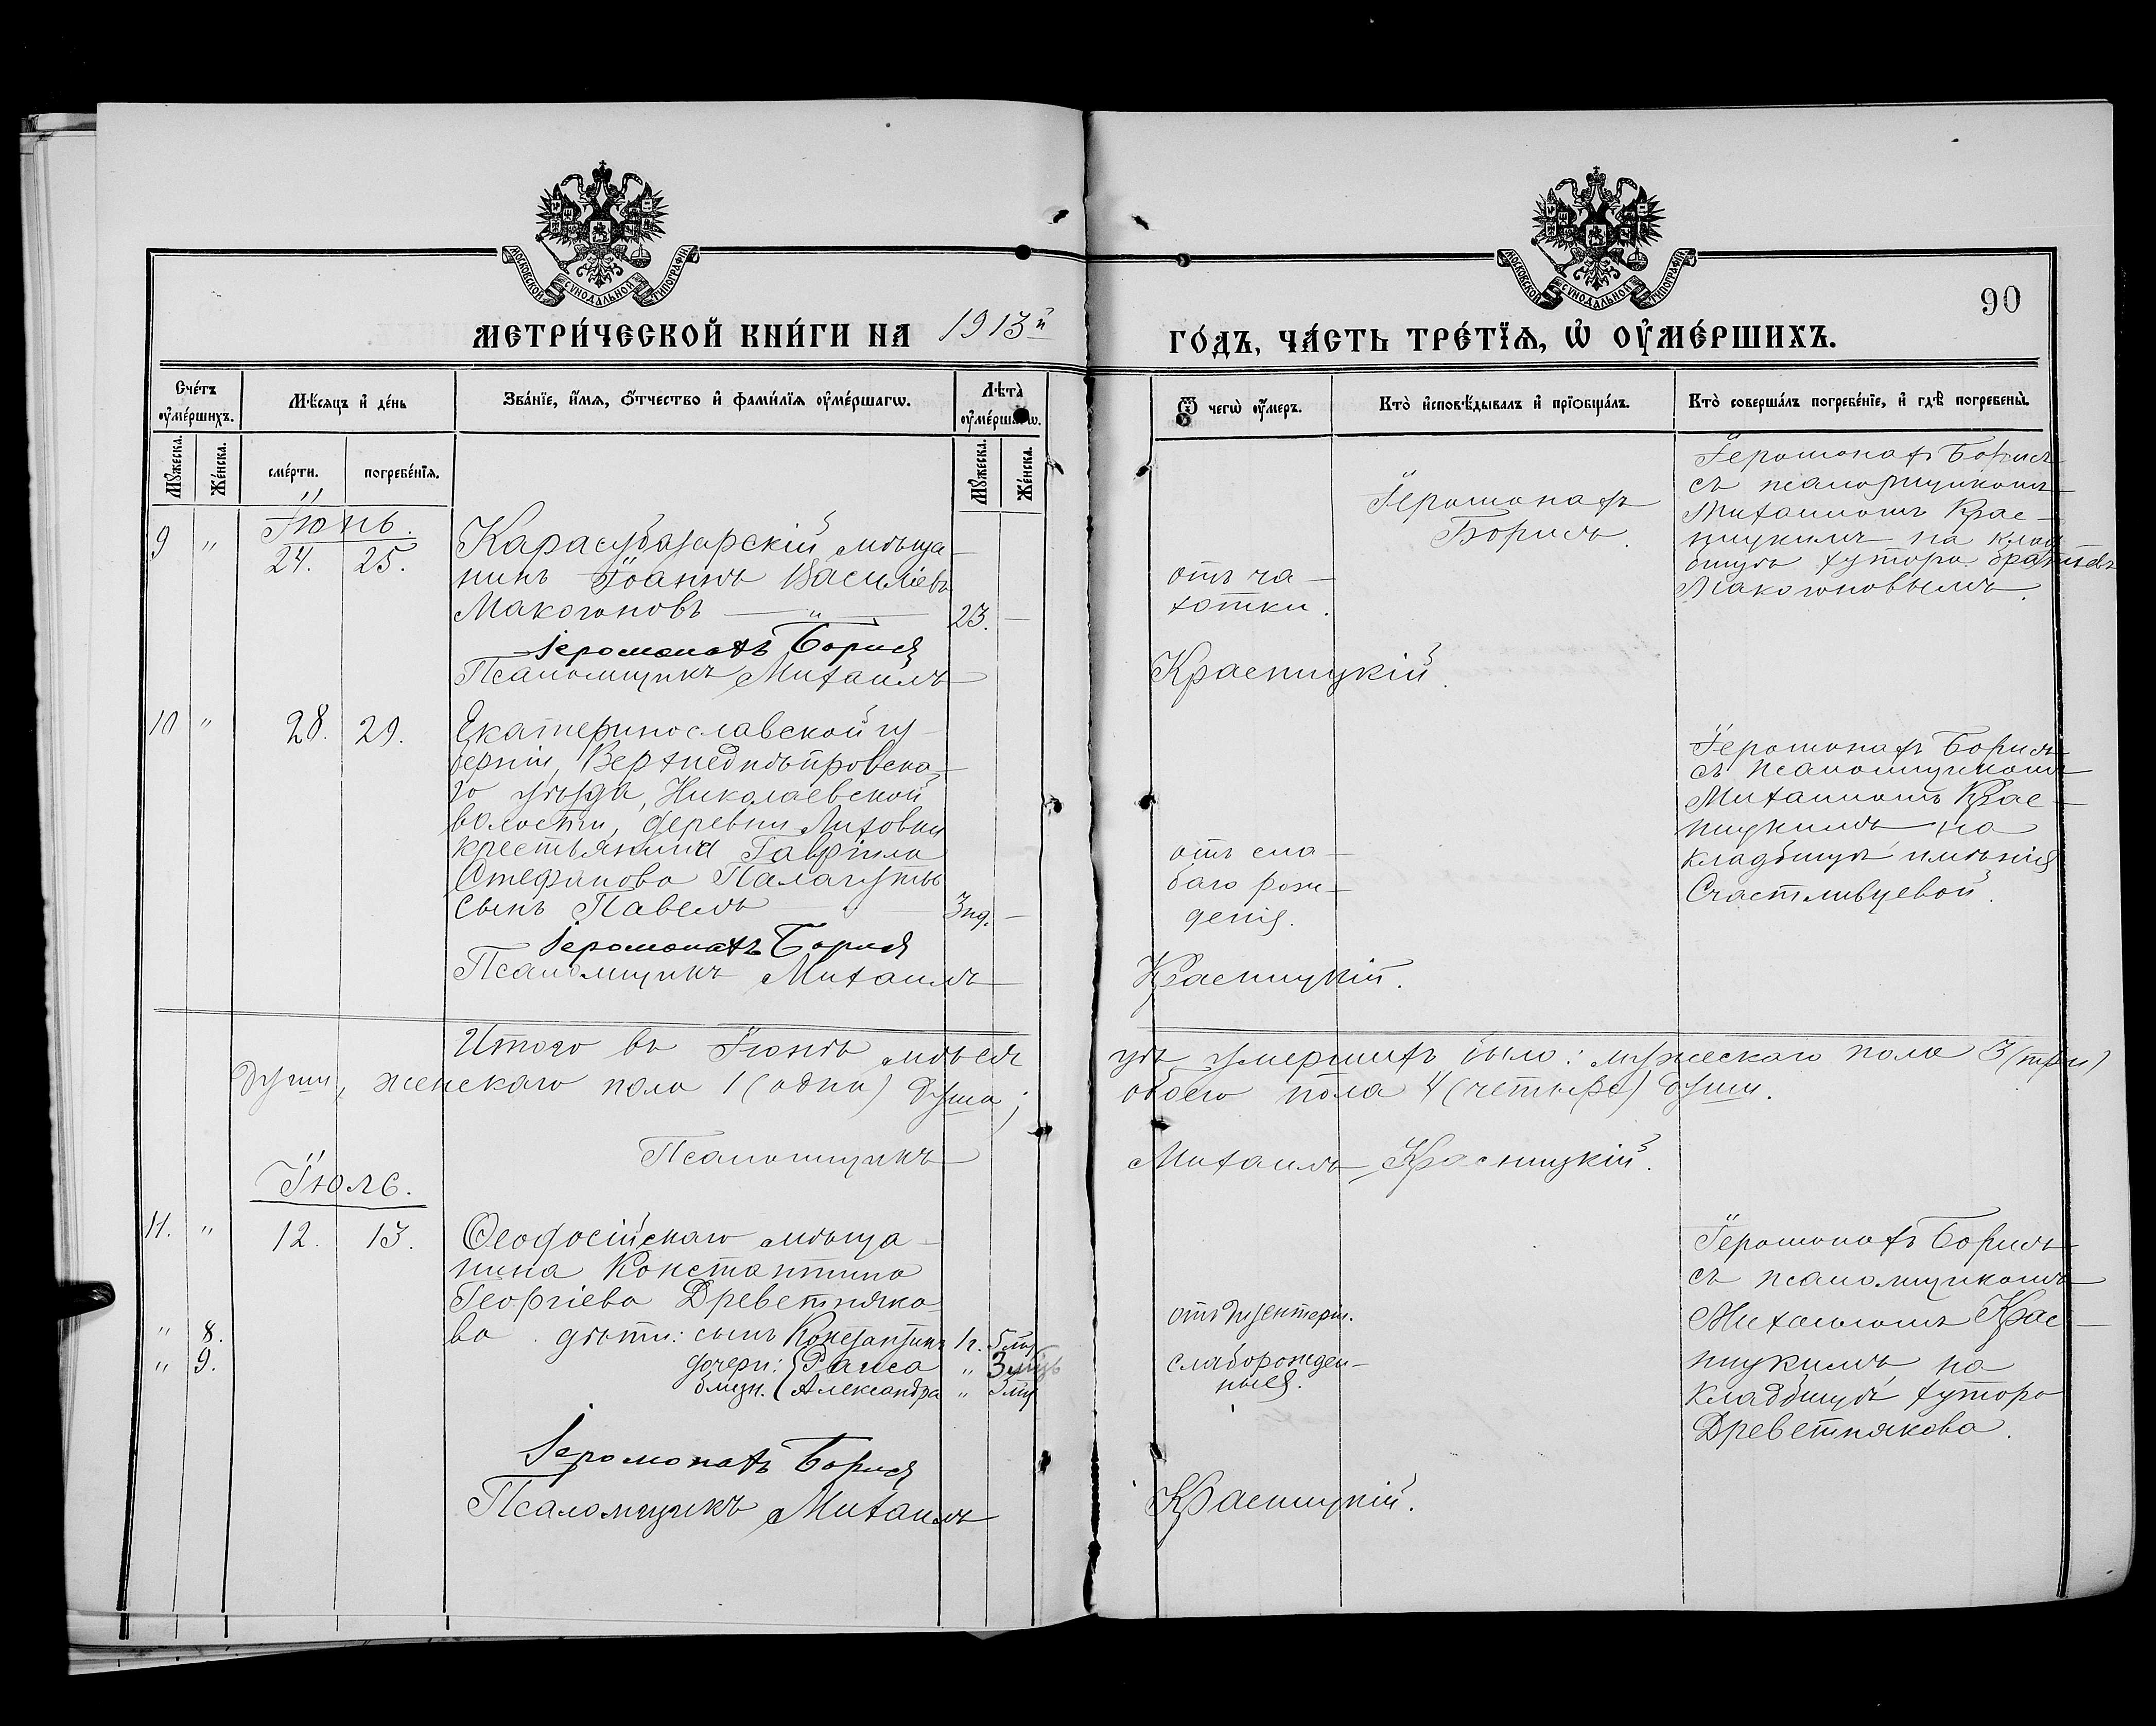 МОСКОВСКОЙ СѴНОДАЛЬНОЙ ТИПОГРАФІИ
МОСКОВСКОЙ СѴНОДАЛЬНОЙ ТИПОГРАФІИ
90
МЕТРИ́ЧЕСКОЙ КНИ́ГИ НА 1913й ГО́ДЪ, ЧА́СТЬ ТРЕ́ТЇѦ, Ѡ҆ ОУ҆МЕ́РШИХЪ.
Сче́тъ оу҆ме́ршихъ.
Мꙋжеска.
Же́нска.
Мѣ́сяцъ и҆ де́нь
сме́рти.
погребе́нїѧ.
Зва́нїе, и҆́мѧ, о҆́тчество и҆ фами́лїѧ оу҆ме́ршагѡ.
Лѣ́та оу҆ме́ршагѡ.
Мꙋжеска.
Же́нска.
Ѿ чегѡ̀ оу҆́меръ.
Кто̀ и҆сповѣ́дывалъ и҆ прїѡбща́лъ.
Кто̀ соверша́лъ погребе́нїе, и҆ гдѣ̀ погребены̀.
Іюнь.
9 " 24. 25.
Карасубазарскій мѣща-
нинъ Іоаннъ Василіевъ
Макогоновъ — " — 23. —
отъ ча-
хотки.
Іеромонахъ
Борисъ.
Іеромонахъ Борисъ
съ псаломщикомъ
Михаиломъ Крас-
ницкимъ на клад
бищѣ хутора братьевъ
Макогоновыхъ.
Іеромонахъ Борисъ
Псаломщикъ Михаилъ Красницкій.
10 " 28. 29.
Екатеринославской гу-
берніи, Верхнеднѣпровска-
го уѣзда, Николаевской
волости, деревни Лиховки
крестьянина Гавріила
Стефанова Палагуты
сынъ Павелъ — 3 нд. —
отъ сла-
баго рож-
денія.
Іеромонахъ Борисъ
съ псаломщикомъ
Михаиломъ Крас-
ницкимъ на
кладбищѣ имѣнія
Счастливцевой.
Іеромонахъ Борисъ
Псаломщикъ Михаилъ Красницкій.
Итого въ Іюнѣ мѣся цѣ умершихъ было: мужескаго пола 3 (три)
души, женскаго пола 1 (одна) душа; обоего пола 4 (четыре) души.
Псаломщикъ Михаилъ Красницкій.
Іюль.
11. " 12. 13.
Ѳеодосійскаго мѣща-
нина Константина
Георгіева Древетняко-
ва дѣти: сынъ Константинъ 1 г. 5 мѣс
" 8. дочери: { Раиса " 3 мѣс
" 9. близн. { Александра " 3 мѣс
отъ дизентеріи.
слаборожден-
ныя.
Іеромонахъ Борисъ
съ псаломщикомъ
Михаиломъ Крас-
ницкимъ, на
кладбищѣ хутора
Древетнякова.
Іеромонахъ Борисъ
Псаломщикъ Михаилъ Красницкій.